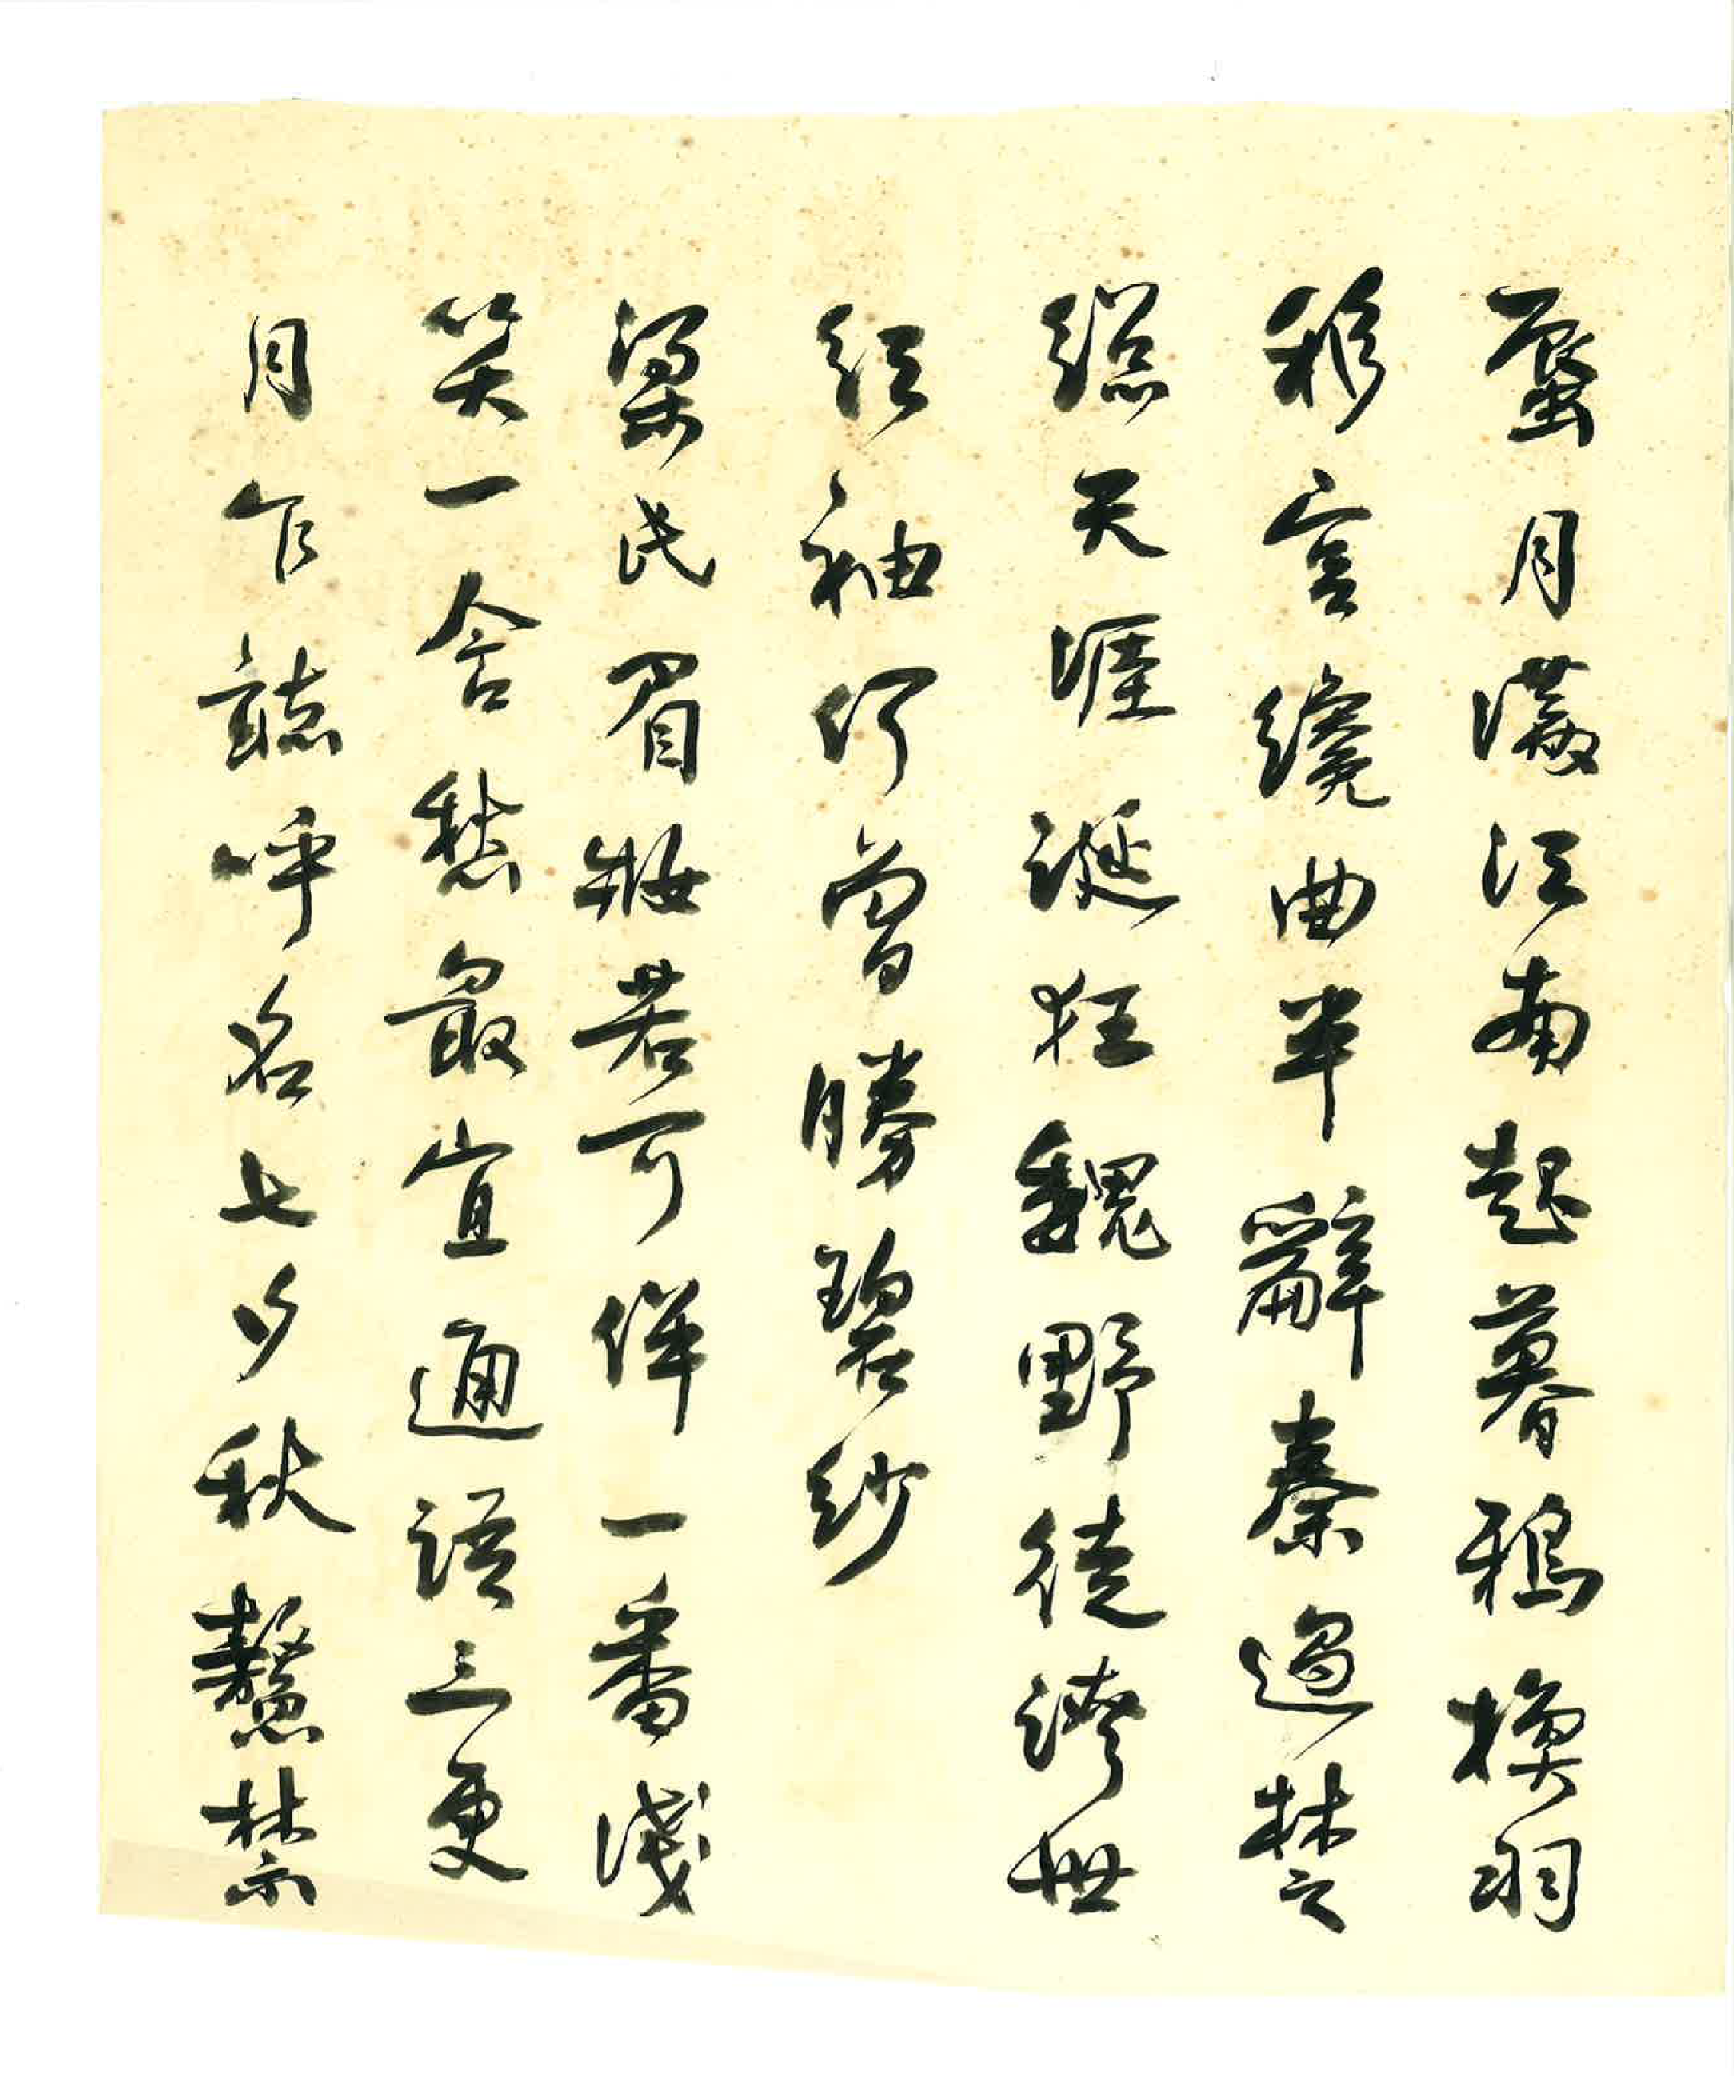 蜃月滿江南起暮鴉換羽
移宮纔曲半辭秦過楚
總天涯誕狂魏野徒驚世
紅袖何曾勝碧紗
梁氏眉妝若可佯一番淺
笑一含愁最宜通語三更
月乍聽呼名七夕秋鼇禁